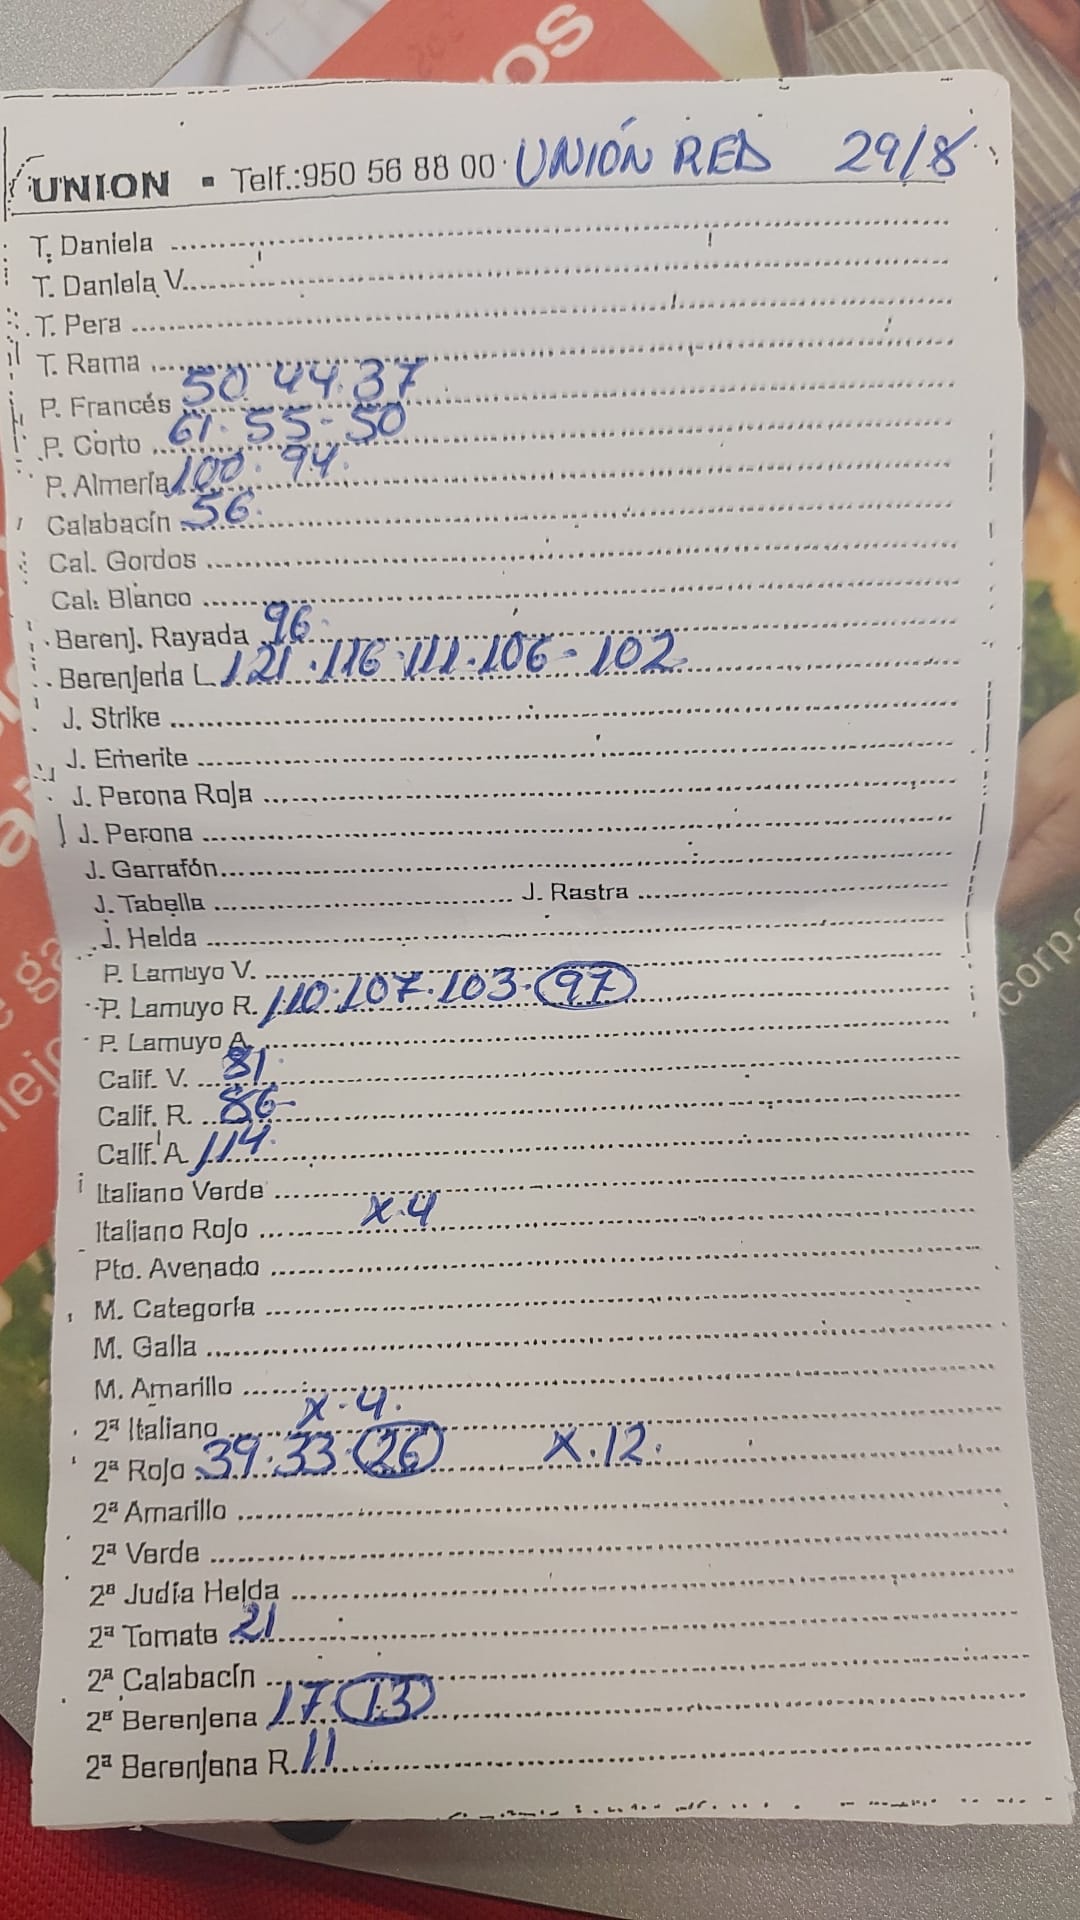 UNION - Telf.:950 56 88 00 UNIÓN RED 29/8
T. Daniela
T. Daniela V.
T. Pera
T. Rama
P. Francés 50 44.37
P. Corto 61. 55- 50
P. Almería 100. 94.
Calabacín 56.
Cal. Gordos
Cal. Blanco
Berenj. Rayada 96.
Berenjena L. 121.116.111.106-102
J. Strike
J. Emerite
J. Perona Roja
J. Perona
J. Garrafón
J. Tabella J. Rastra
J. Helda
P. Lamuyo V.
P. Lamuyo R. 110.107.103.97
P. Lamuyo A.
Calif. V. 81.
Calif. R. 86-
Calif. A 114.
Italiano Verde
Italiano Rojo X.4
Pto. Avenado
M. Categoría
M. Galla
M. Amarillo
2ª Italiano X.4.
2ª Rojo 39.33.26 X.12.
2ª Amarillo
2ª Verde
2ª Judía Helda
2ª Tomate 21
2ª Calabacín
2ª Berenjena 17.13
2ª Berenjena R. 11
OS
corp.